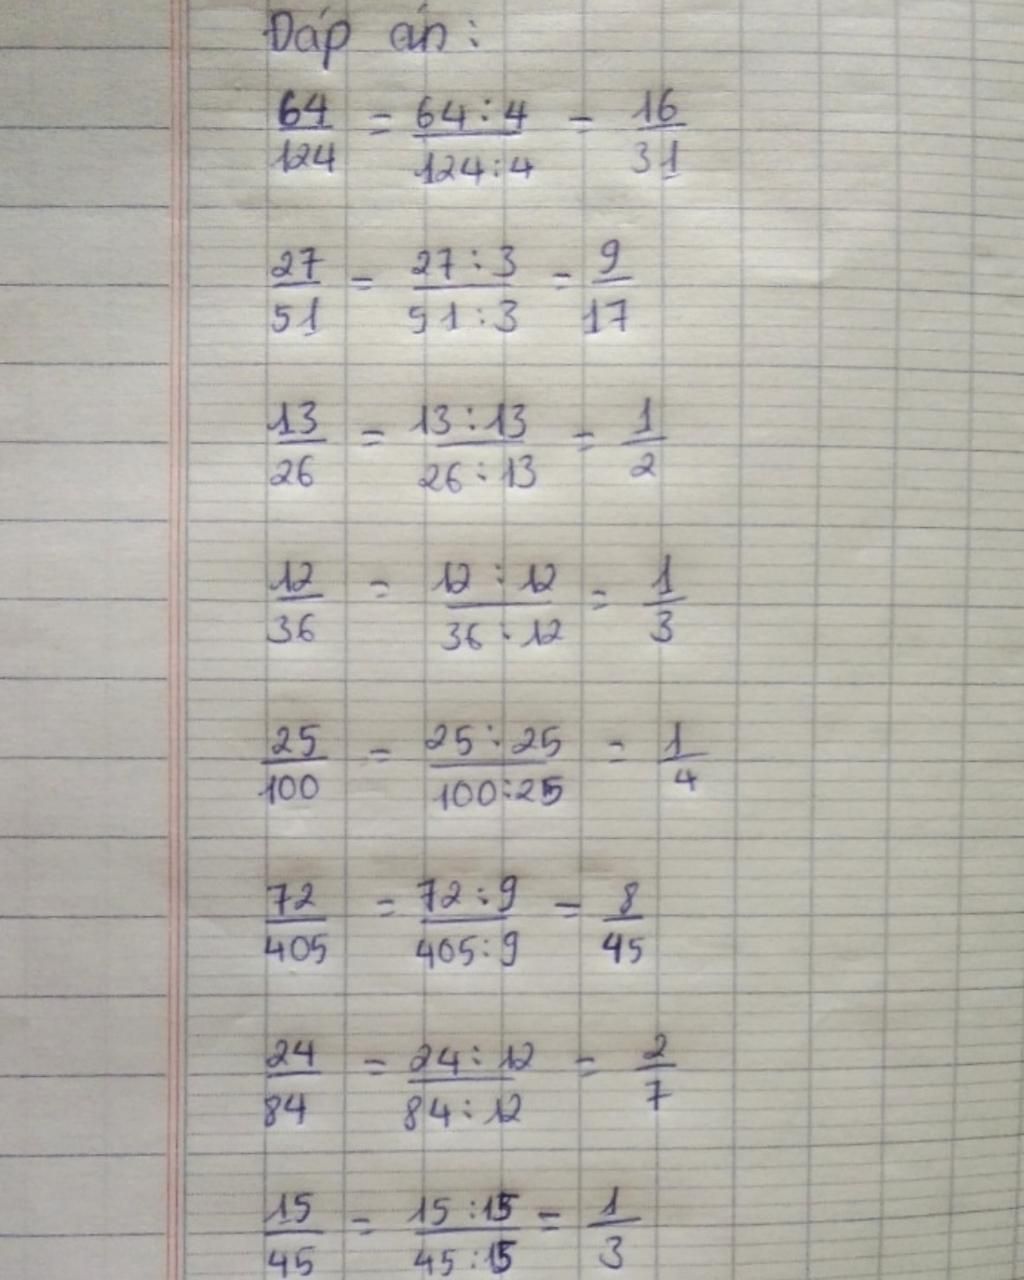 Đáp án:
64/124 = 64:4/124:4 = 16/31
27/51 = 27:3/51:3 = 9/17
13/26 = 13:13/26:13 = 1/2
12/36 = 12:12/36:12 = 1/3
25/100 = 25:25/100:25 = 1/4
72/405 = 72:9/405:9 = 8/45
24/84 = 24:12/84:12 = 2/7
15/45 = 15:15/45:15 = 1/3